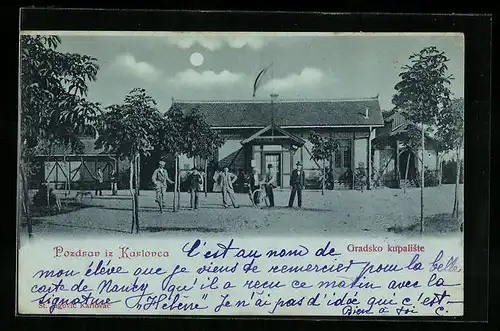 Pozdrav iz Karlovca
Gradsko kupalište
C'est au nom de
mon élève que je viens de remercier pour la belle
carte de Nancy qu'il a reçu ce matin avec la
signature "Hélène" Je n'ai pas d'idée qui c'est.
St. Jagović Karlovac
Bien à toi C.